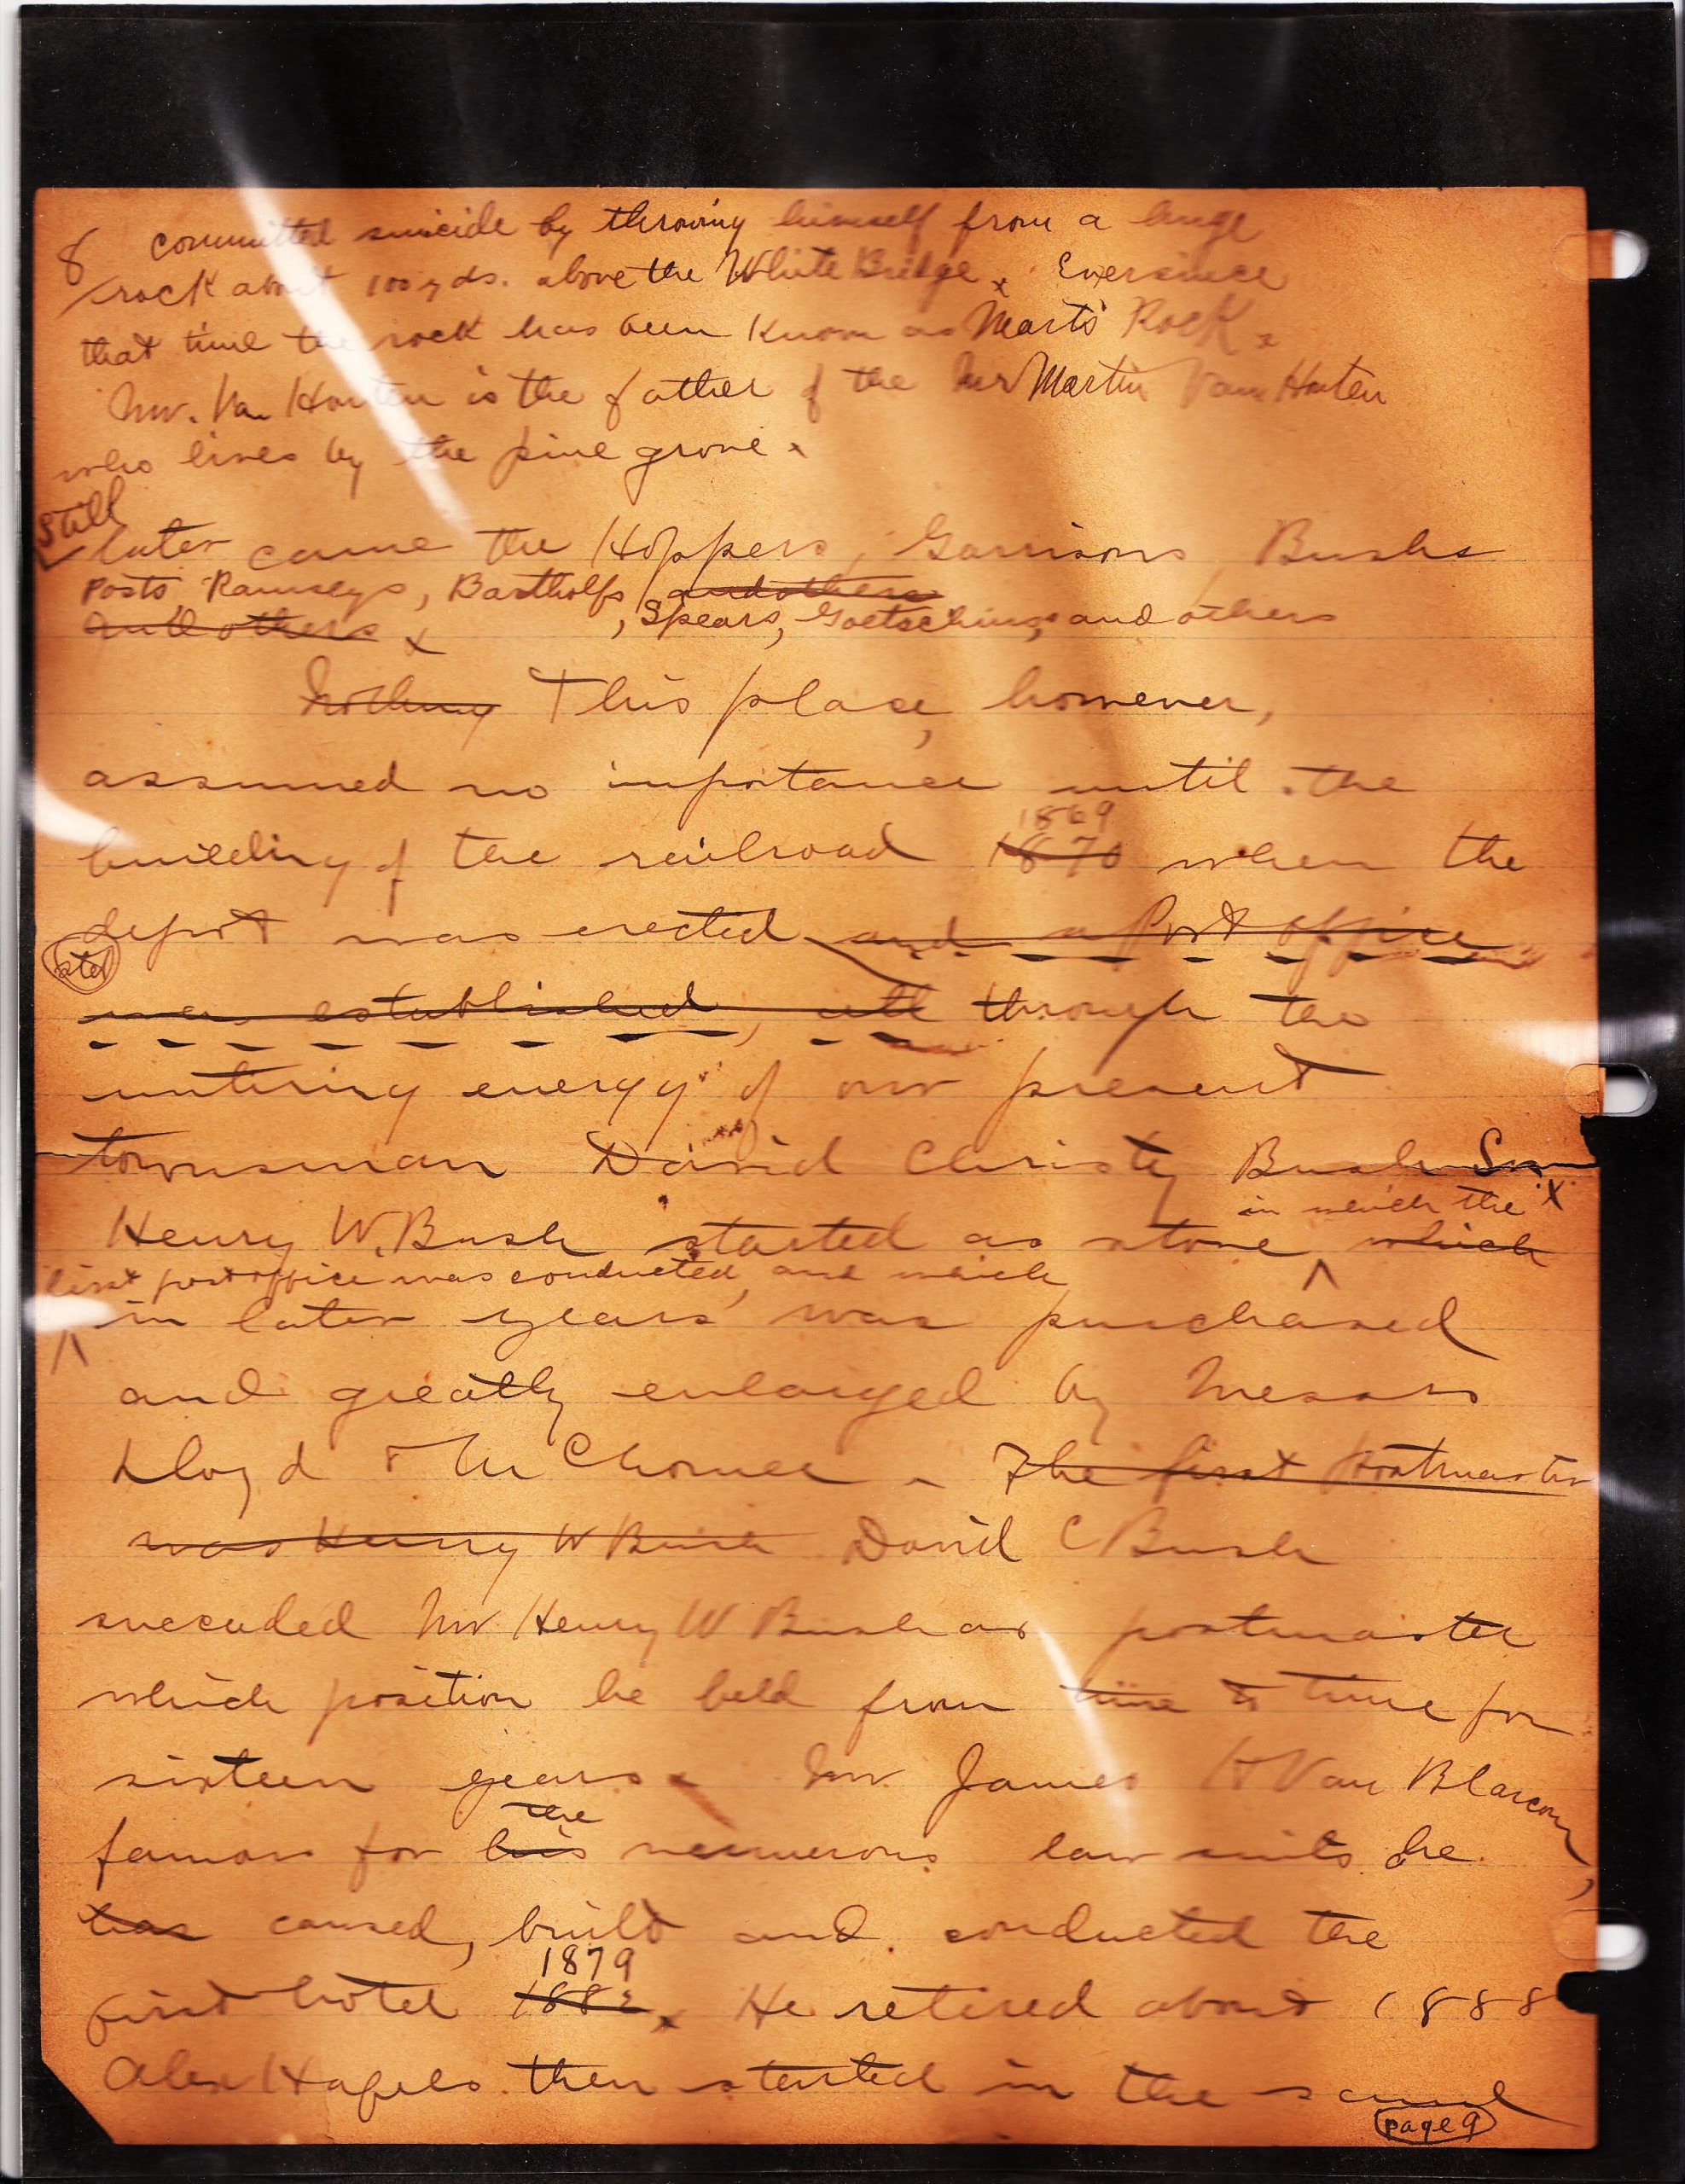 8 committed suicide by throwing himself from a huge
rock about 100 yds. above the White Bridge x Eversince
that time the rock has been known as Marts Rock x
Mr. Van Houten is the father of the Mr Martin Van Houten
who lives by the pine grove x
Still
later came the Hoppers, Garrisons, Bushs
Posts Ramseys, Bartholfs, and others
and others x , Spears, Goetschius, and others
Nothing This place, however,
assumed no importance until the
1869
building of the railroad 1870 when the
depot was erected and a Post office
stet
was established, all through the
untiring energy of our present
townsman David Christy Bush Sr
in which the x
Henry W. Bush started as store which
first post office was conducted, and which
in later years was purchased
and greatly enlarged by Messrs
Lloyd & The first postmaster
was Henry W Bush David C Bush
succeded Mr Henry W Bush as postmaster
which position he held from time to time for
sixteen years x Mr. James H Van Blarcom,
the
famous for his numerous law suits he
has caused, build and conducted the
1879
first hotel 1882 x He retired about 1888
Alex Hagels then started in the same
page 9